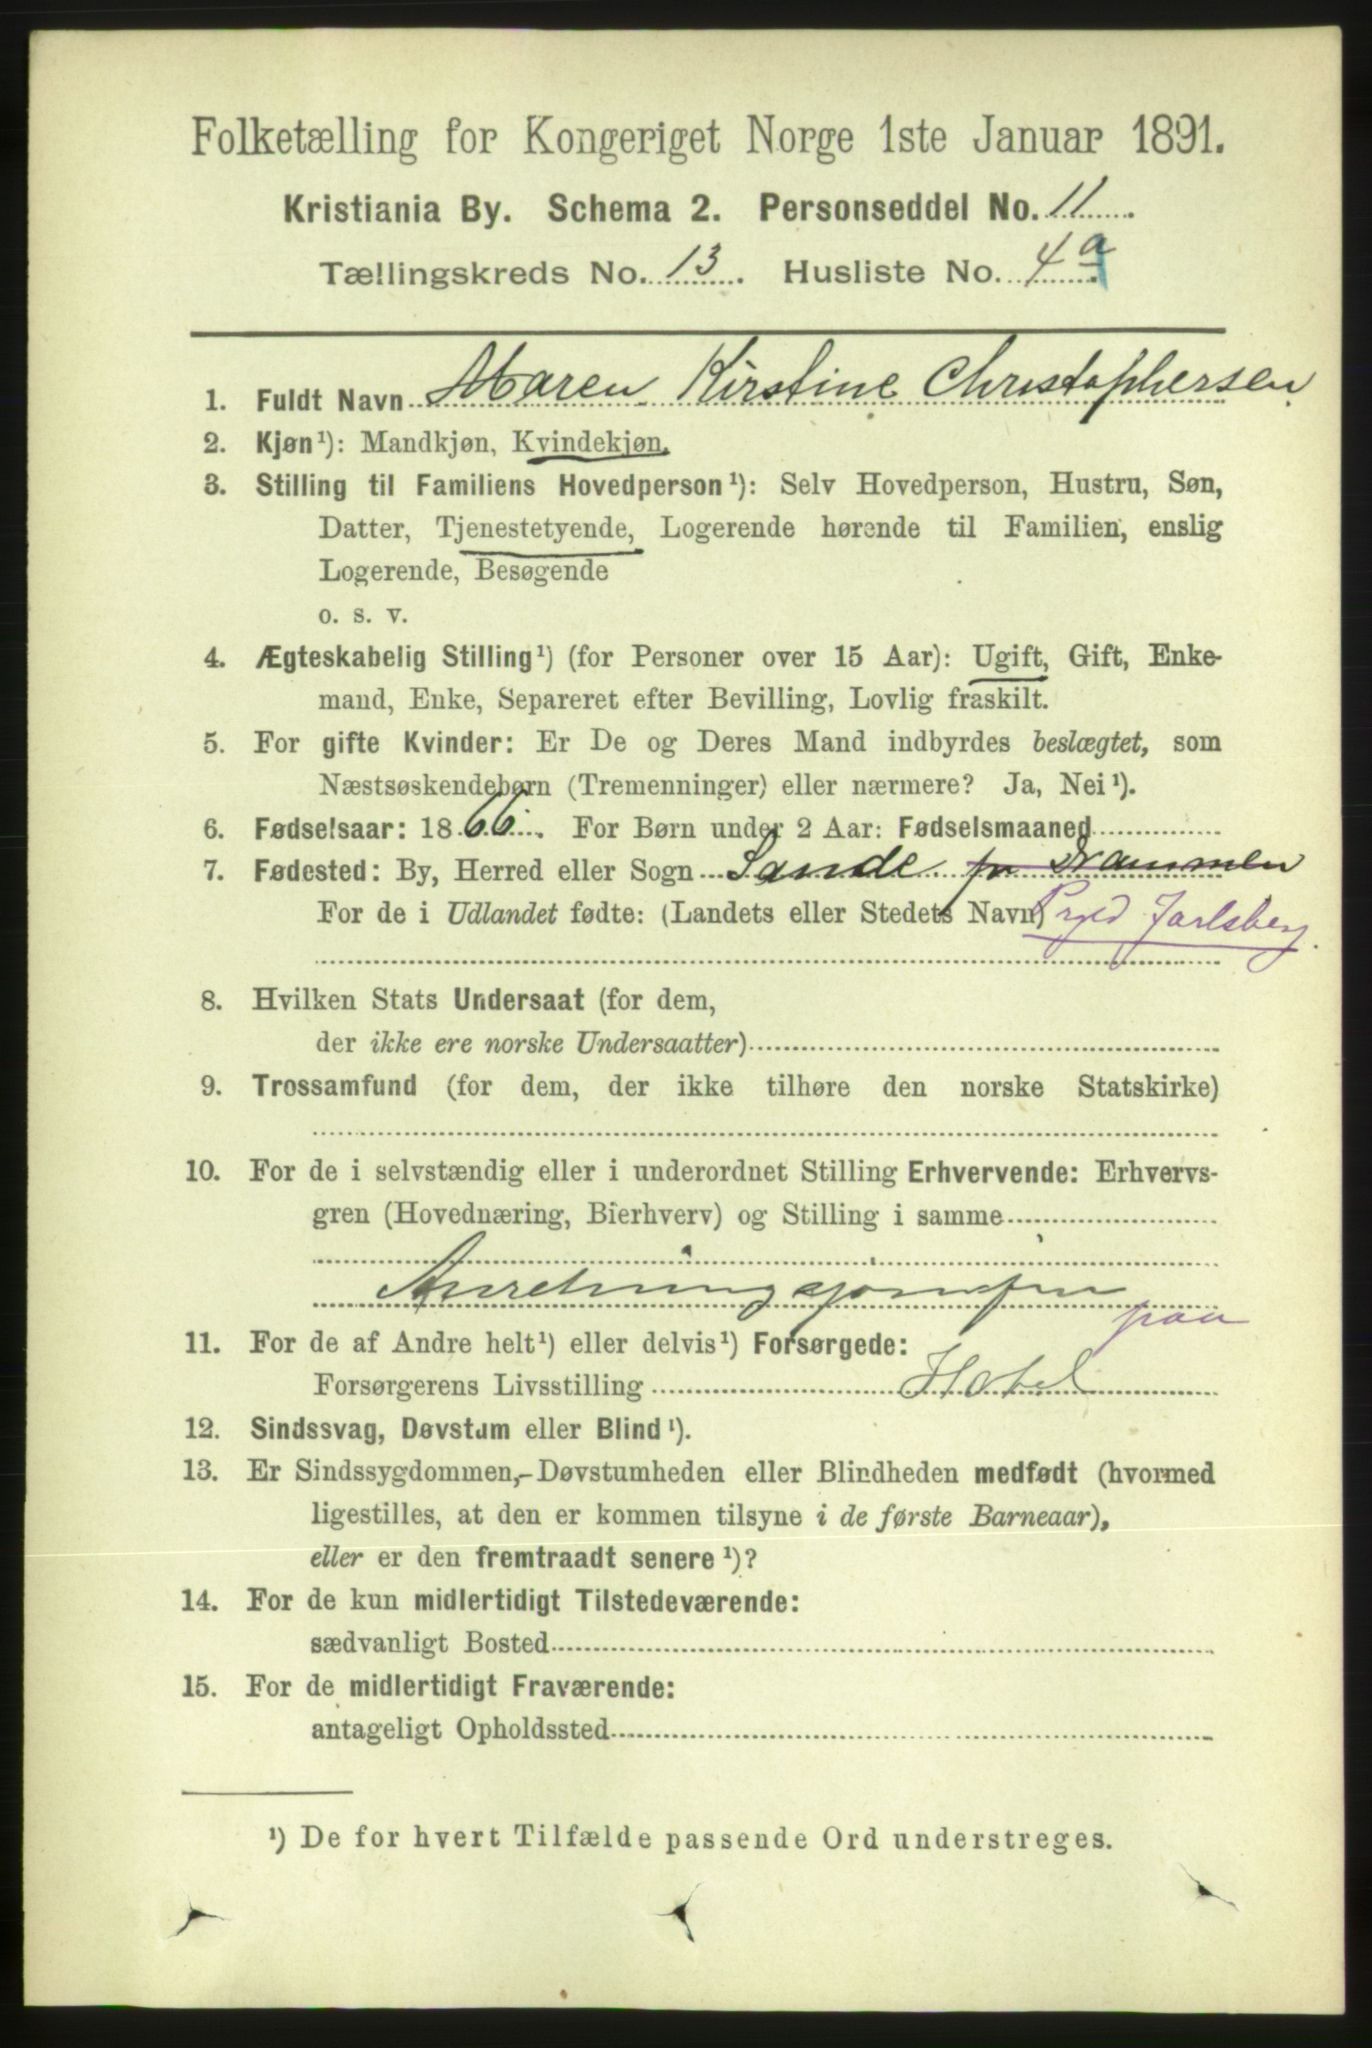 Folketælling for Kongeriget Norge 1ste Januar 1891.
Kristiania By. Schema 2. Personseddel No. 11
Tællingskreds No. 13. Husliste No. 4a
1. Fuldt Navn Maren Kirstine Christophersen
2. Kjøn¹): Mandkjøn, Kvindekjøn.
3. Stilling til Familiens Hovedperson¹): Selv Hovedperson, Hustru, Søn,
Datter, Tjenestetyende, Logerende hørende til Familien, enslig
Logerende, Besøgende
o. s. v.
4. Ægteskabelig Stilling¹) (for Personer over 15 Aar): Ugift, Gift, Enke-
mand, Enke, Separeret efter Bevilling, Lovlig fraskilt.
5. For gifte Kvinder: Er De og Deres Mand indbyrdes beslægtet, som
Næstsøskendebørn (Tremenninger) eller nærmere? Ja, Nei¹).
6. Fødselsaar: 1866. For Børn under 2 Aar: Fødselsmaaned
7. Fødested: By, Herred eller Sogn Sande pr Drammen
For de i Udlandet fødte: (Landets eller Stedets Navn) Prgld Jarlsberg
8. Hvilken Stats Undersaat (for dem,
der ikke ere norske Undersaatter)
9. Trossamfund (for dem, der ikke tilhøre den norske Statskirke)
10. For de i selvstændig eller i underordnet Stilling Erhvervende: Erhvervs-
gren (Hovednæring, Bierhverv) og Stilling i samme
Anretningsjomfru paa
11. For de af Andre helt¹) eller delvis¹) Forsørgede:
Forsørgerens Livsstilling Hotel
12. Sindssvag, Døvstum eller Blind¹).
13. Er Sindssygdommen, Døvstumheden eller Blindheden medfødt (hvormed
ligestilles, at den er kommen tilsyne i de første Barneaar),
eller er den fremtraadt senere¹)?
14. For de kun midlertidigt Tilstedeværende:
sædvanligt Bosted
15. For de midlertidigt Fraværende:
antageligt Opholdssted
¹) De for hvert Tilfælde passende Ord understreges.